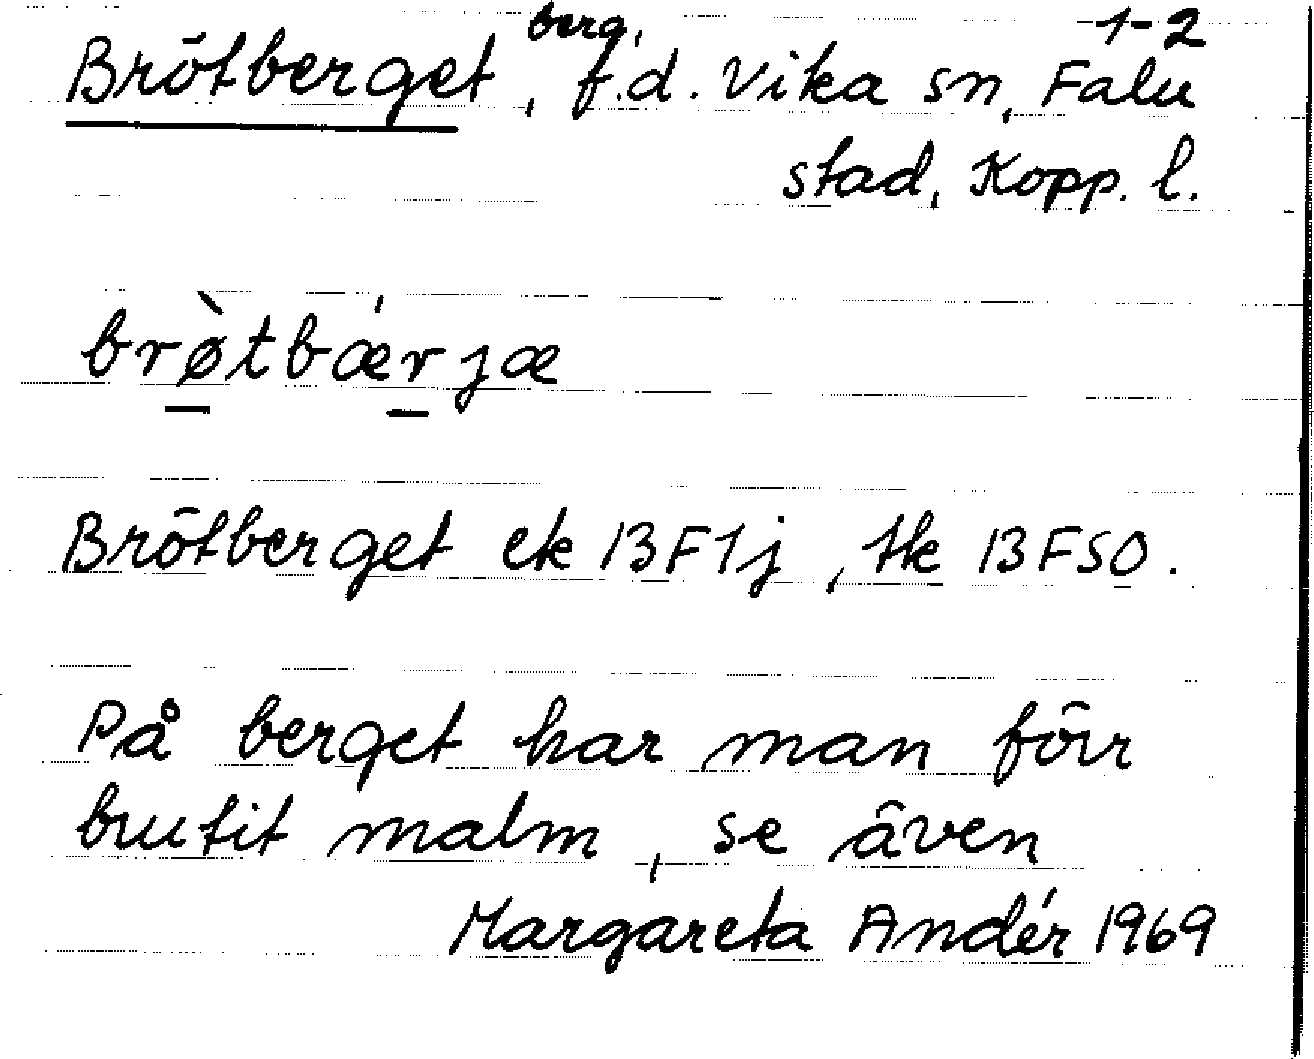 berg, 1-2
Brötberget, f.d. Vika sn, Falu
stad, Kopp. l.
brø̀tbǽrjæ
Brötberget ek 13F1j, tk 13FSO.
På berget har man förr
brutit malm, se även
Margareta Andér 1969